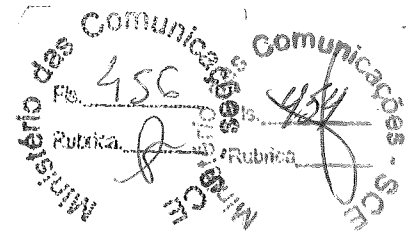 Ministério das Comunicações - SCE
Fls. 456
Rubrica.
Ministério das Comunicações - SCE
Fls. 454
Rubrica